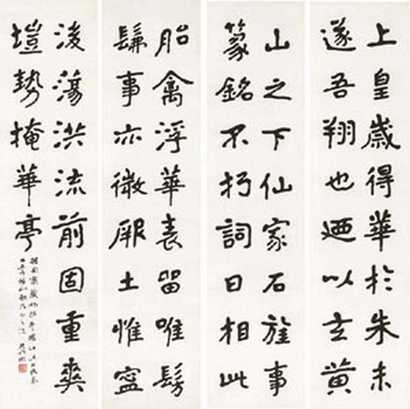 上皇歲得華於朱未
遂吾翔也廼以玄黃
山之下仙家石旌事
篆銘不朽詞曰相此
胎禽浮華表留唯髣
髴事亦微厥土惟寧
後蕩洪流前固重爽
塏勢掩華亭